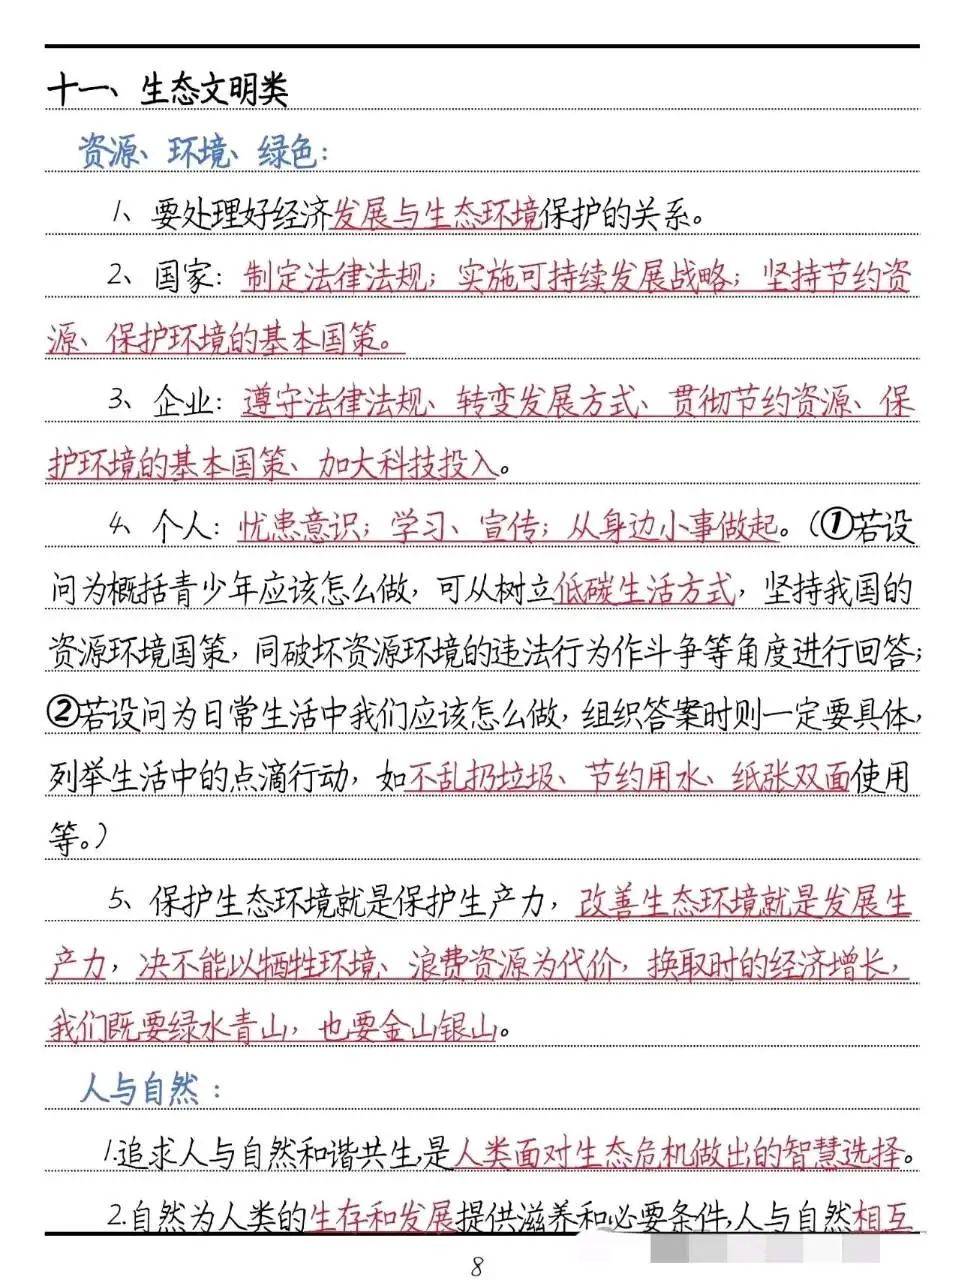 十一、生态文明类
资源、环境、绿色：
1、要处理好经济发展与生态环境保护的关系。
2、国家：制定法律法规；实施可持续发展战略；坚持节约资
源、保护环境的基本国策。
3、企业：遵守法律法规、转变发展方式、贯彻节约资源、保
护环境的基本国策、加大科技投入。
4、个人：忧患意识；学习、宣传；从身边小事做起。（①若设
问为概括青少年应该怎么做，可从树立低碳生活方式，坚持我国的
资源环境国策，同破坏资源环境的违法行为作斗争等角度进行回答；
②若设问为日常生活中我们应该怎么做，组织答案时则一定要具体，
列举生活中的点滴行动，如不乱扔垃圾、节约用水、纸张双面使用
等。）
5、保护生态环境就是保护生产力，改善生态环境就是发展生
产力，决不能以牺牲环境、浪费资源为代价，换取时的经济增长，
我们既要绿水青山，也要金山银山。
人与自然：
1.追求人与自然和谐共生，是人类面对生态危机做出的智慧选择。
2.自然为人类的生存和发展提供滋养和必要条件，人与自然相互
8